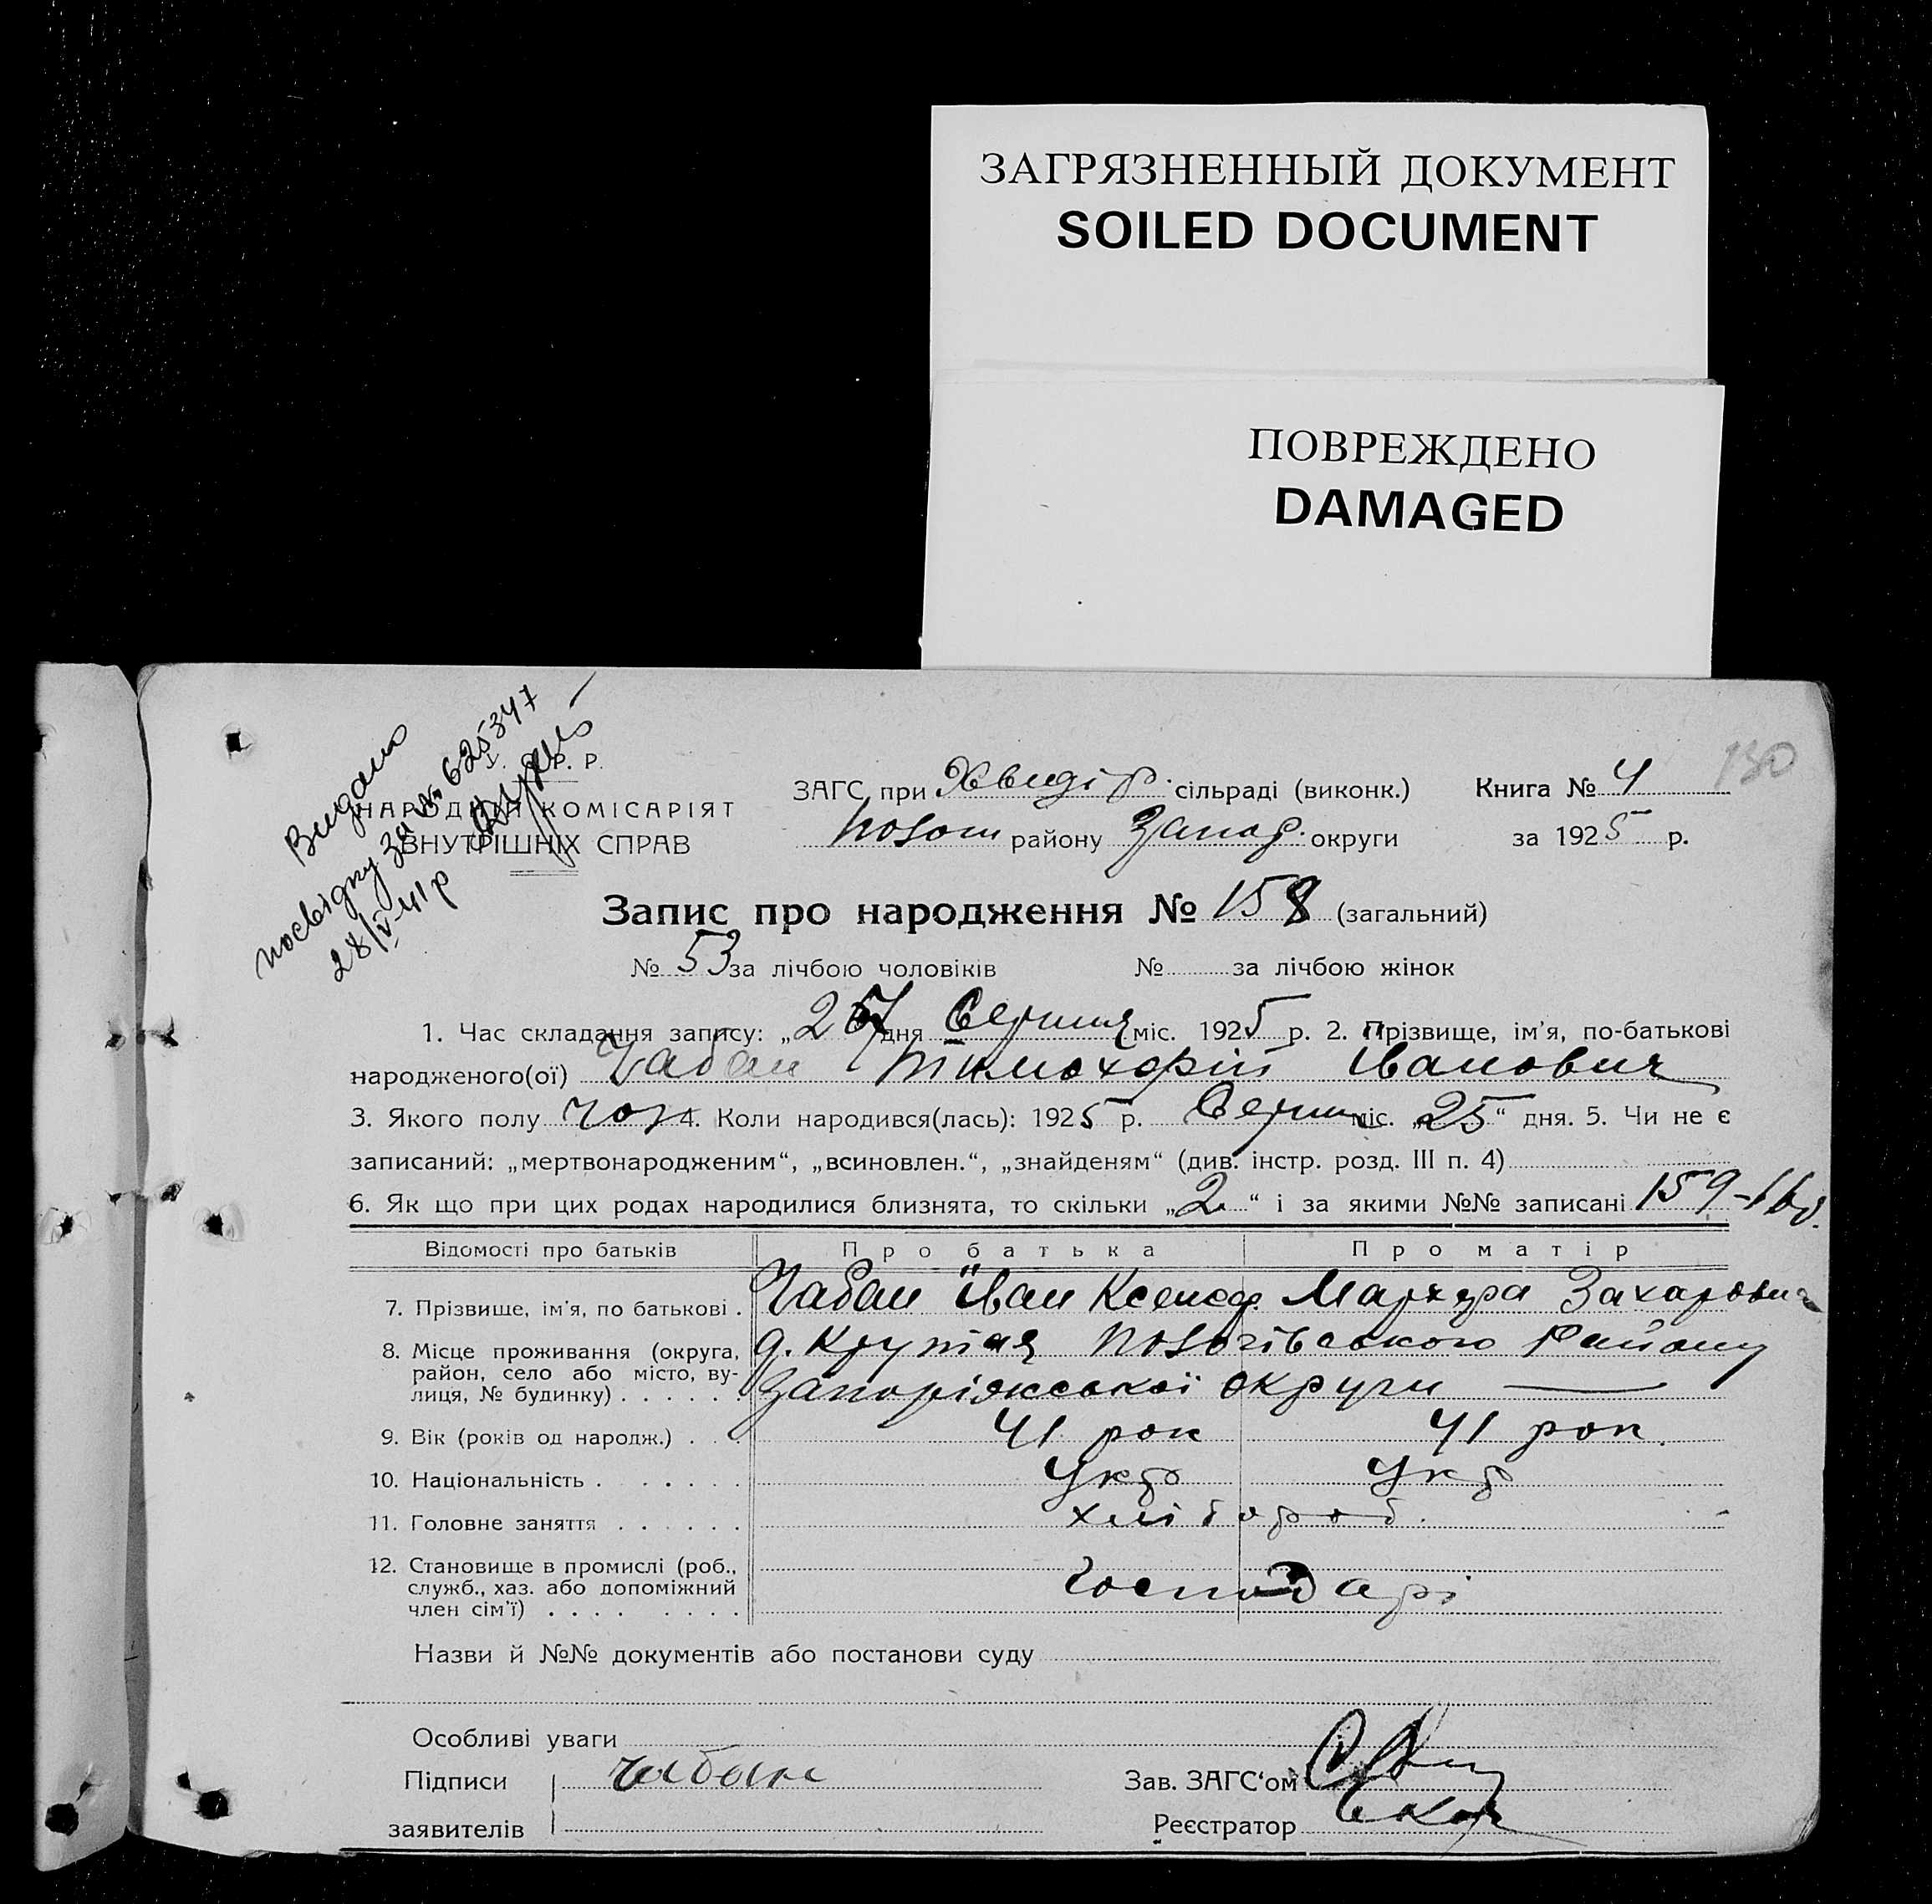 ЗАГРЯЗНЕННЫЙ ДОКУМЕНТ
SOILED DOCUMENT
ПОВРЕЖДЕНО
DAMAGED
130
Видано
посвідку за № 625347
28/V-41 р
У. С. Р. Р.
НАРОДНІЙ КОМІСАРІЯТ
ВНУТРІШНІХ СПРАВ
ЗАГС при Хведір. сільраді (виконк.) Книга № 4
району Запор. округи за 1925 р.
Запис про народження № 158 (загальний)
№ 53 за лічбою чоловіків № за лічбою жінок
1. Час складання запису: „27 дня Серпня міс. 1925 р. 2. Прізвище, ім'я, по-батькові
народженого(ої) Чабан Тимохфій Іванович
3. Якого полу чол 4. Коли народився(лась): 1925 р. Серпн міс. „25“ дня. 5. Чи не є
записаний: „мертвонародженим“, „всиновлен.“, „знайденям“ (див. інстр. розд. III п. 4)
6. Як що при цих родах народилися близнята, то скільки „2“ і за якими №№ записані 159-160.
Відомості про батьків Про батька Про матір
7. Прізвище, ім'я, по батькові . Чабан Іван Ксеноф. Мархвра Захаровна
8. Місце проживання (округа, район, село або місто, вулиця, № будинку) . . . . . . д. Крутая район
Запоріжської округи
9. Вік (років од народж.) . . . 41 рок 41 рок.
10. Національність . . . . . . Укр Укр
11. Головне заняття . . . . . . хлібороб.
12. Становище в промислі (роб., служб., хаз. або допоміжний член сім'ї) . . . . . . . . Господарі
Назви й №№ документів або постанови суду
Особливі уваги
Підписи Чабан Зав. ЗАГС‘ом
заявителів Реєстратор